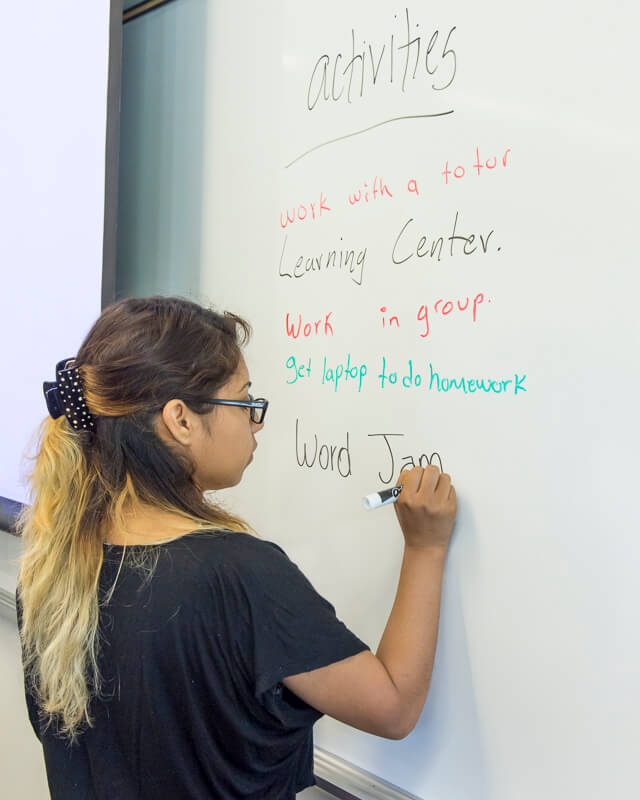 activities
work with a totur
Learning Center.
Work in group.
get laptop to do homework
Word Jam